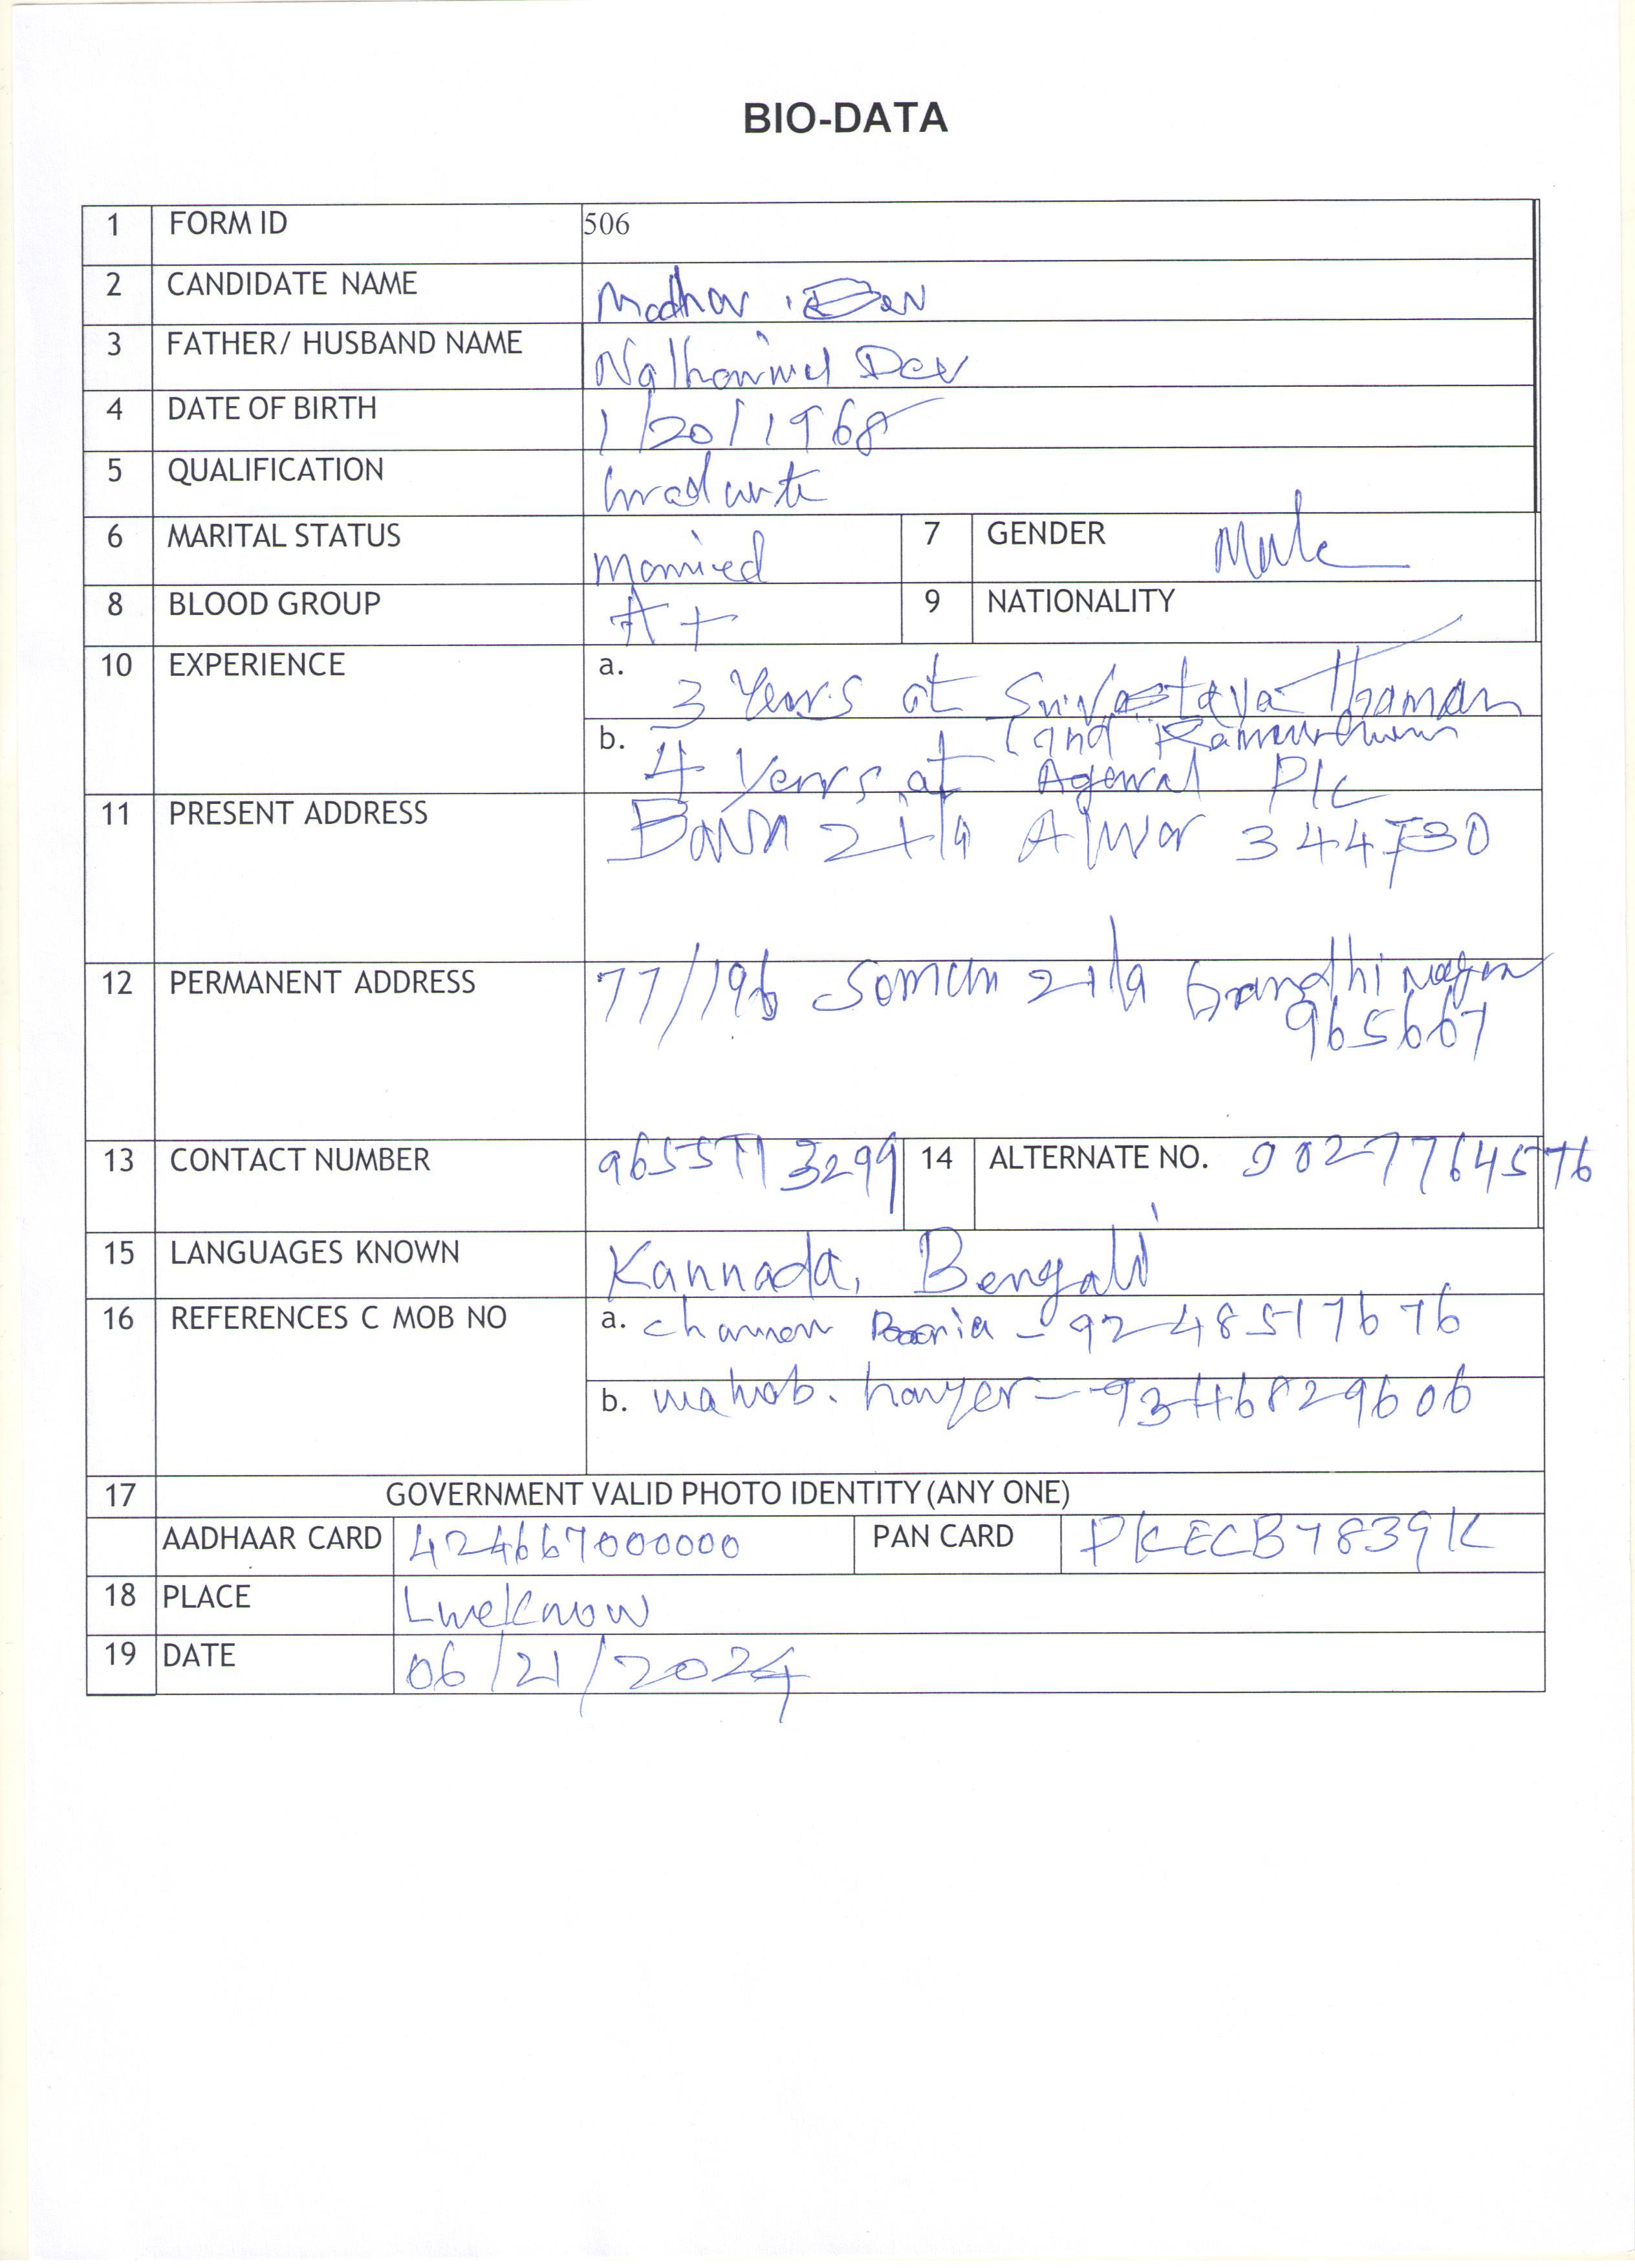 BIO-DATA
1 FORM ID 506
2 CANDIDATE NAME Madhav Dev
3 FATHER/ HUSBAND NAME Nathaniel Dev
4 DATE OF BIRTH 1/20/1968
5 QUALIFICATION Graduate
6 MARITAL STATUS Married 7 GENDER Male
8 BLOOD GROUP A+ 9 NATIONALITY
10 EXPERIENCE a. 3 Years at Srivastava Thaman
and
b. 4 Years at Agarwal PLC
11 PRESENT ADDRESS Zila Alwar 344730
12 PERMANENT ADDRESS 77/196 Zila Gandhinagar
965667
13 CONTACT NUMBER 965571 3299 14 ALTERNATE NO. 90277645776
15 LANGUAGES KNOWN Kannada, Bengali
16 REFERENCES C MOB NO a. Chaman - 9248517676
b. - 9346829606
17 GOVERNMENT VALID PHOTO IDENTITY (ANY ONE)
AADHAAR CARD 424667000000 PAN CARD PKECB7839K
18 PLACE Lucknow
19 DATE 06/21/2024